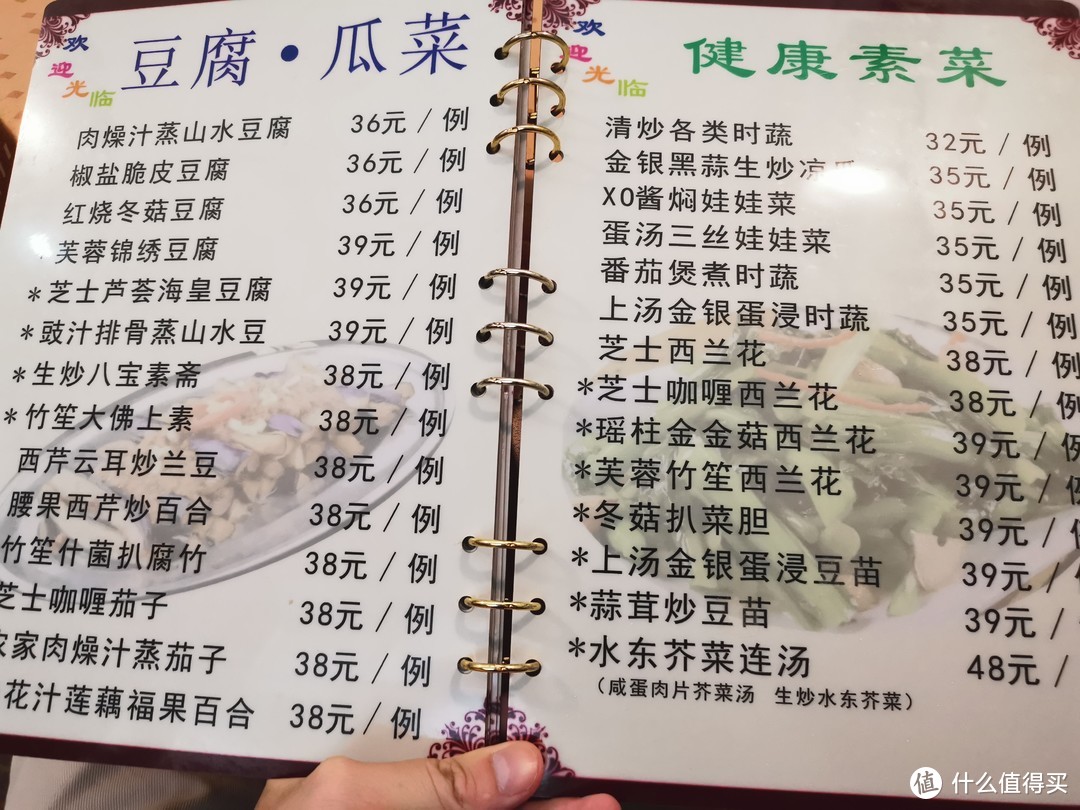 欢迎光临
豆腐·瓜菜
肉燥汁蒸山水豆腐 36元/例
椒盐脆皮豆腐 36元/例
红烧冬菇豆腐 36元/例
芙蓉锦绣豆腐 39元/例
*芝士芦荟海皇豆腐 39元/例
*豉汁排骨蒸山水豆 39元/例
*生炒八宝素斋 38元/例
*竹笙大佛上素 38元/例
西芹云耳炒兰豆 38元/例
腰果西芹炒百合 38元/例
竹笙什菌扒腐竹 38元/例
芝士咖喱茄子 38元/例
农家肉燥汁蒸茄子 38元/例
花汁莲藕福果百合 38元/例
欢迎光临
健康素菜
清炒各类时蔬 32元/例
金银黑蒜生炒凉 35元/例
XO酱焖娃娃菜 35元/例
蛋汤三丝娃娃菜 35元/例
番茄煲煮时蔬 35元/例
上汤金银蛋浸时蔬 35元/例
芝士西兰花 38元/例
*芝士咖喱西兰花 38元/例
*瑶柱金金菇西兰花 39元/例
*芙蓉竹笙西兰花 39元/
*冬菇扒菜胆 39元/
*上汤金银蛋浸豆苗 39元/
*蒜茸炒豆苗 39元/
*水东芥菜连汤 48元/
（咸蛋肉片芥菜汤 生炒水东芥菜）
值 什么值得买